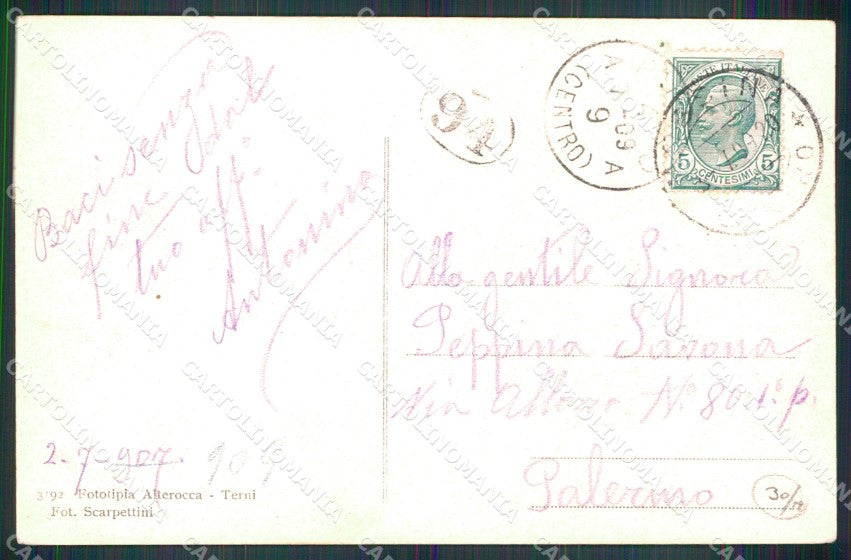 Baci senza
fine dal
tuo aff.
Antonino
2-7-907.
909
3192 Fototipia Alterocca - Terni
Fot. Scarpettini
94
(CENTRO)
9
POSTE ITALIANE
5 5
CENTESIMI
Alla gentile Signora
Peppina Savona
Via N.º 80 1.º p.
Palermo
30/
CARTOLINOMANIA